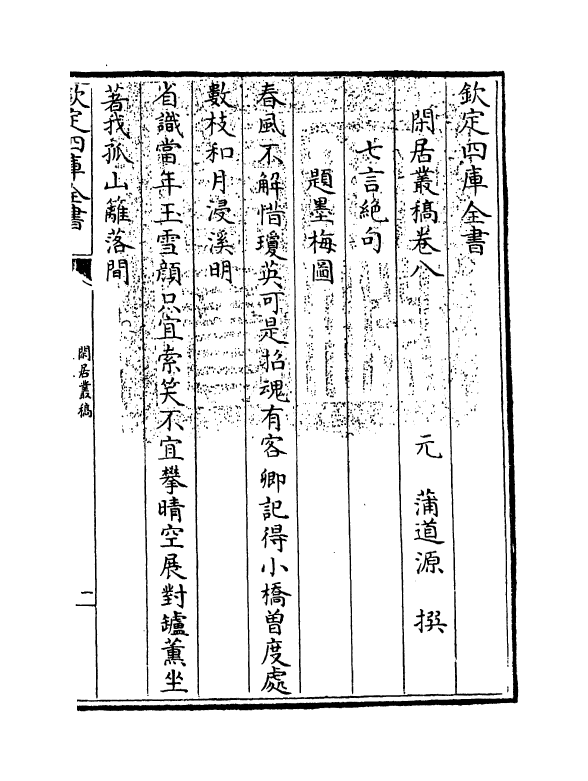 欽定四庫全書
閑居叢稿卷八　元　蒲道源　撰
七言絶句
題墨梅圖
春風不解惜瓊英可是招魂有客卿記得小橋曽度處
數枝和月浸溪明
省識當年玉雪顔只宜索笑不宜攀晴空展對鑪薰坐
著我孤山籬落間
欽定四庫全書
閑居叢稿